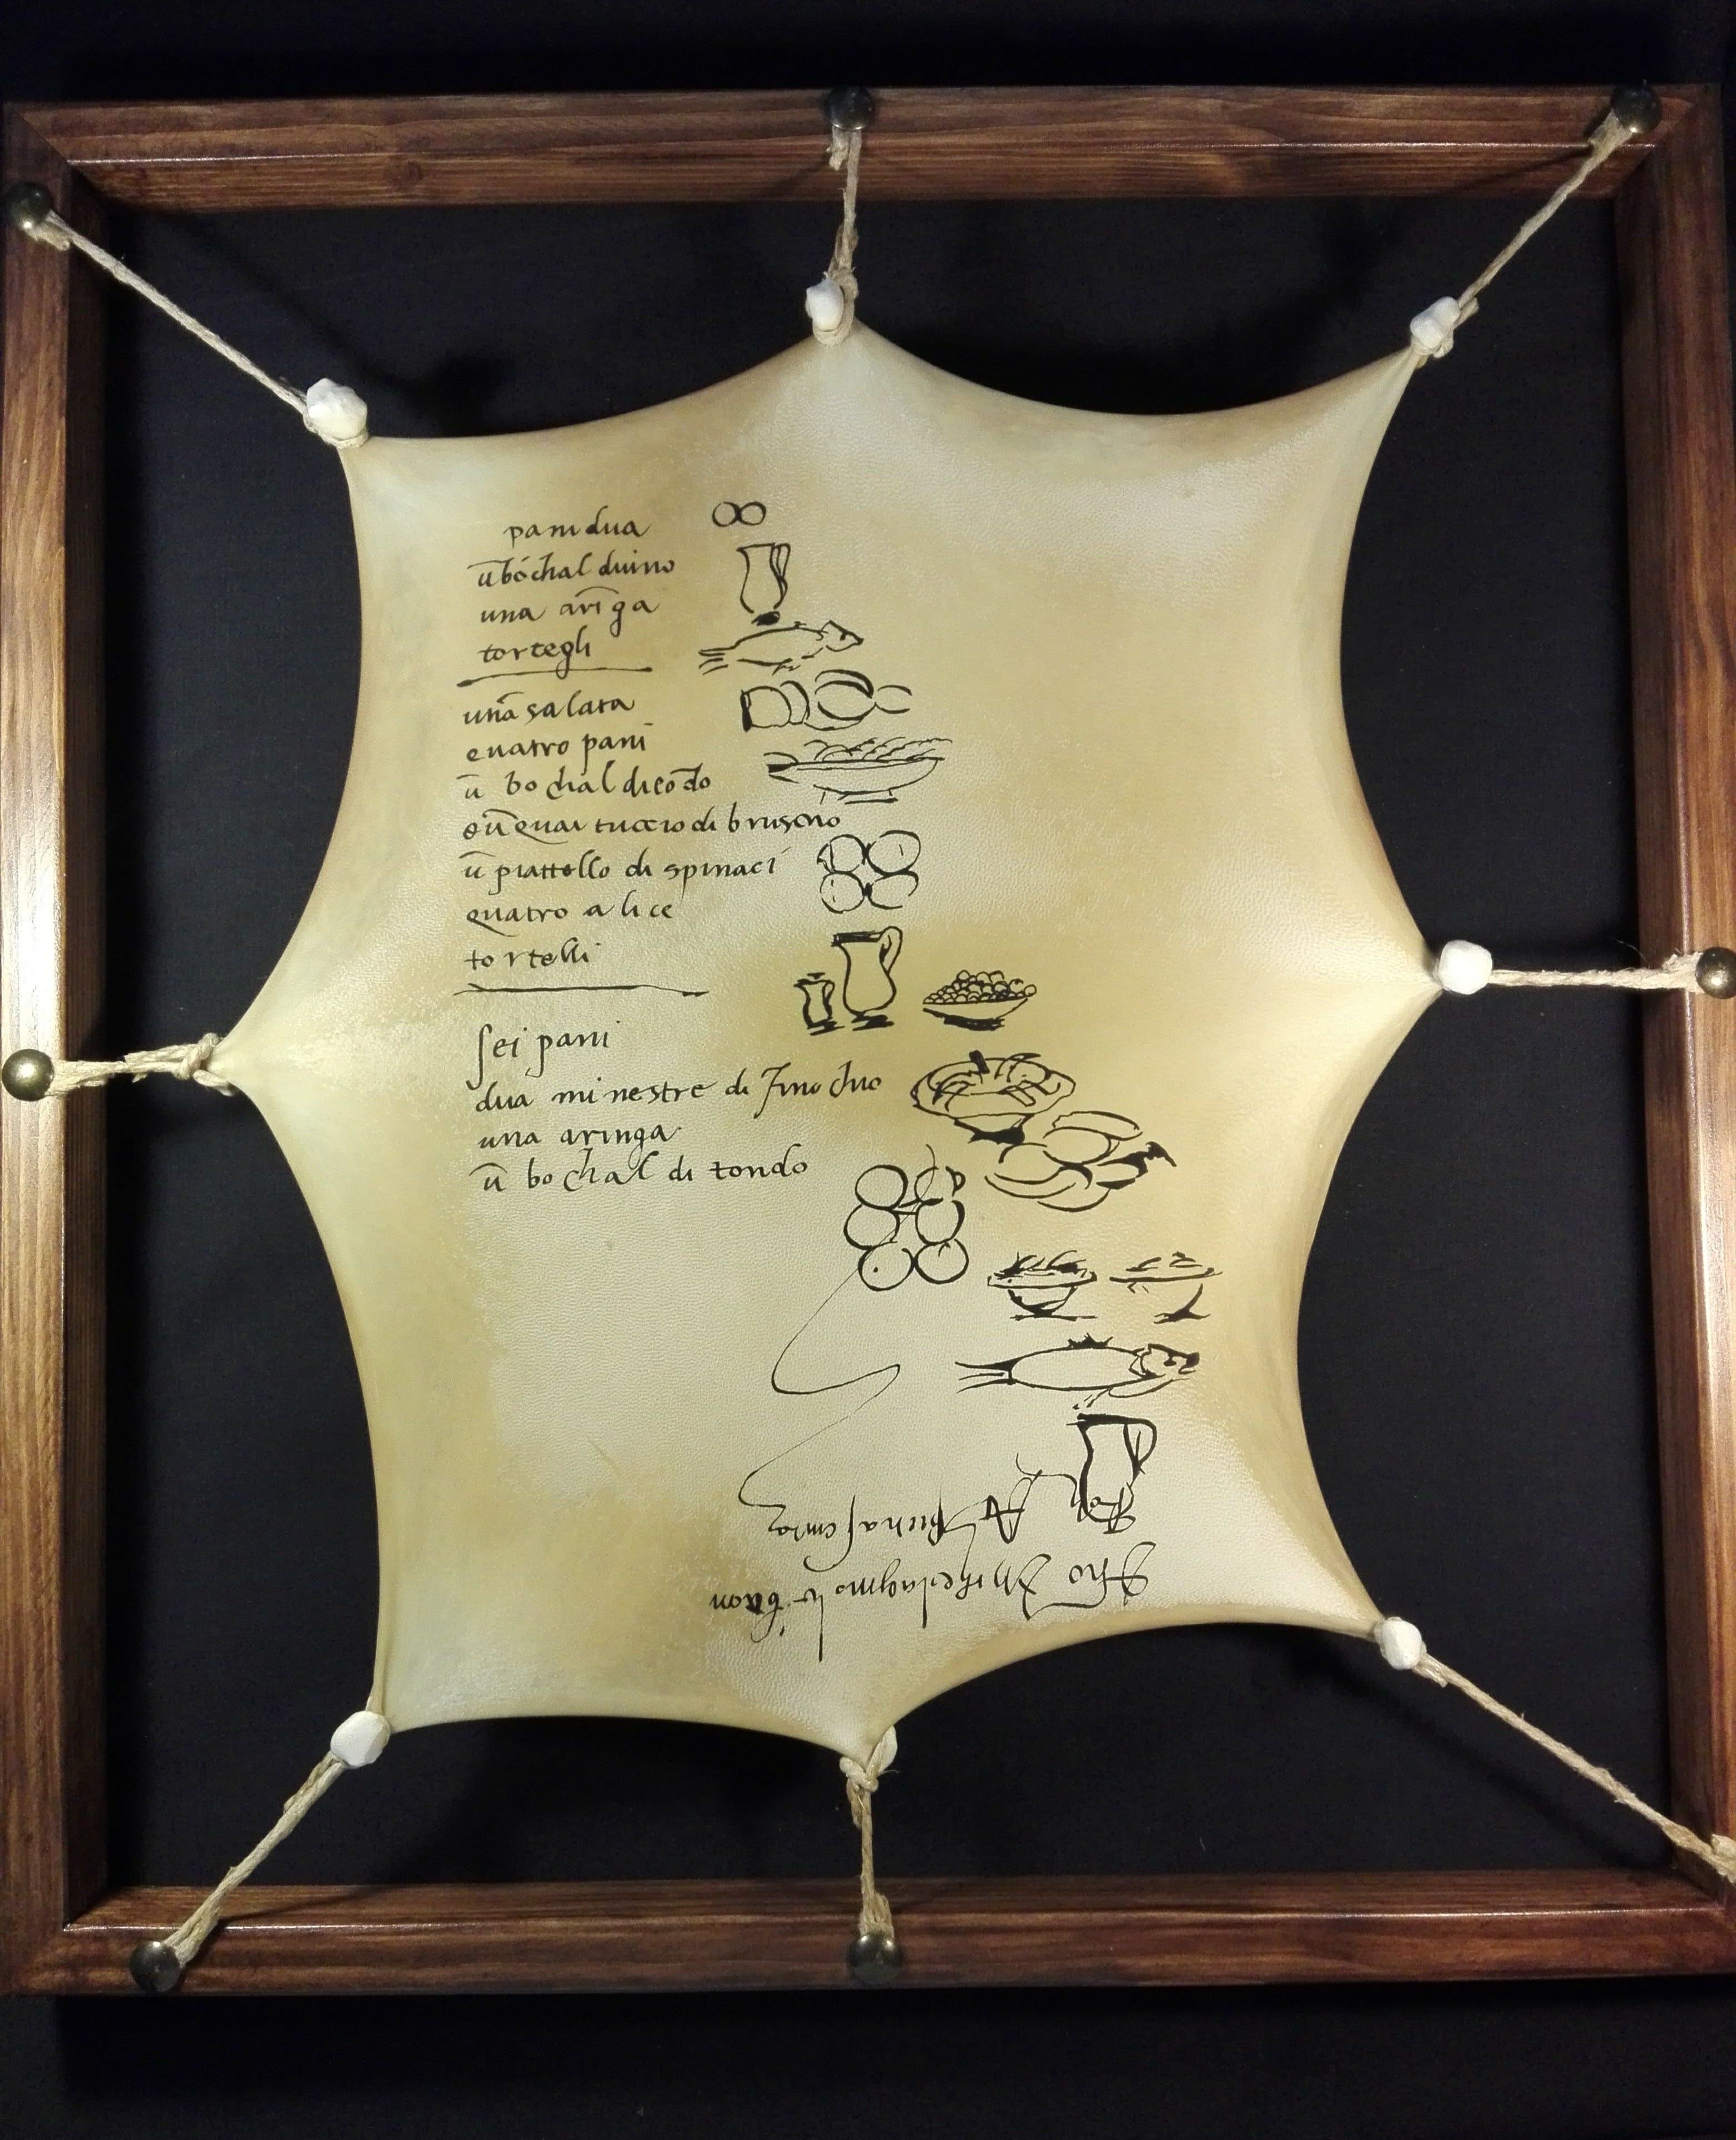 pani dua
ū bóchal dvino
una arīga
tortegli
una salata
quatro pani
ū bochal dicōdo
e ū quartuccio di brusco
ū piattello di spinaci
quatro alice
tortelli
ſei pani
dua minestre di finochio
una aringa
ū bochal di tondo